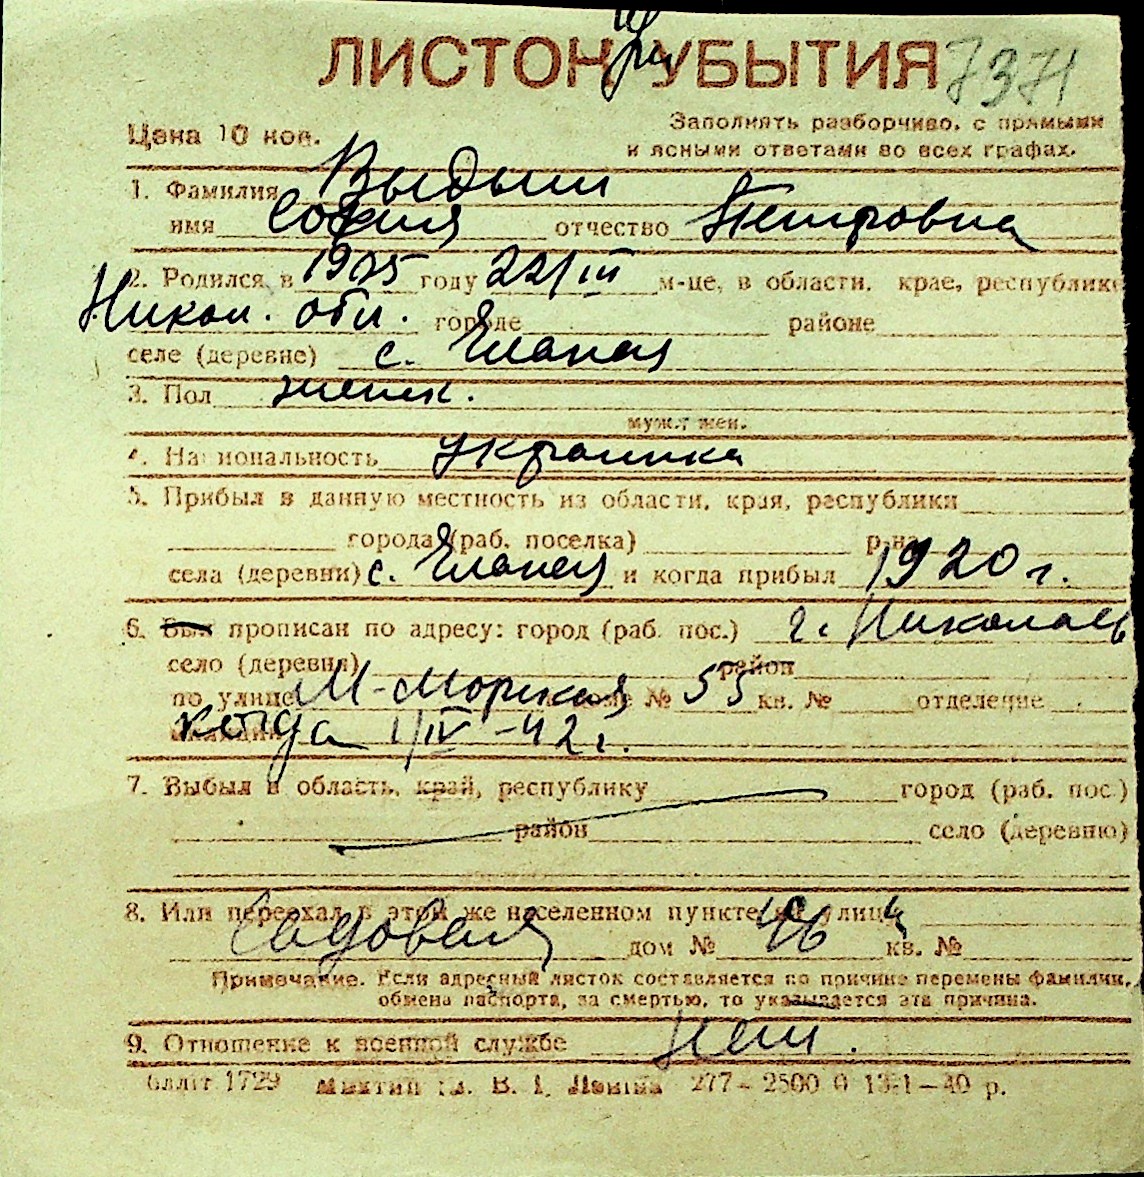 ЛИСТОК при УБЫТИЯ 7371
Цена 10 коп.
Заполнять разборчиво, с прямыми
и ясными ответами во всех графах.
1. Фамилия Выдыш
имя София отчество Петровна
2. Родился в 1905 году 22/III м-це, в области, крае, республике
Никол. обл. городе районе
селе (деревне) с. Еланец
3. Пол женск.
муж., жен.
4. Национальность украинка
5. Прибыл в данную местность из области, края, республики
города (раб. поселка) р-на
села (деревни) с. Еланец и когда прибыл 1920 г.
6. Был прописан по адресу: город (раб. пос.) г. Николаев
село (деревня) район
по улице М-Морская доме № 55 кв. № отделение
когда 1/IV-42 г.
7. Выбыл в область, край, республику город (раб. пос.)
район село (деревню)
8. Или переехал в этом же населенном пункте на улицу
Садовая дом № 46 кв. №
Примечание. Если адресный листок составляется по причине перемены фамилии,
обмена паспорта, за смертью, то указывается эта причина.
9. Отношение к военной службе Нет.
1729 В. І. Леніна 277–2500 0 13-1–40 р.